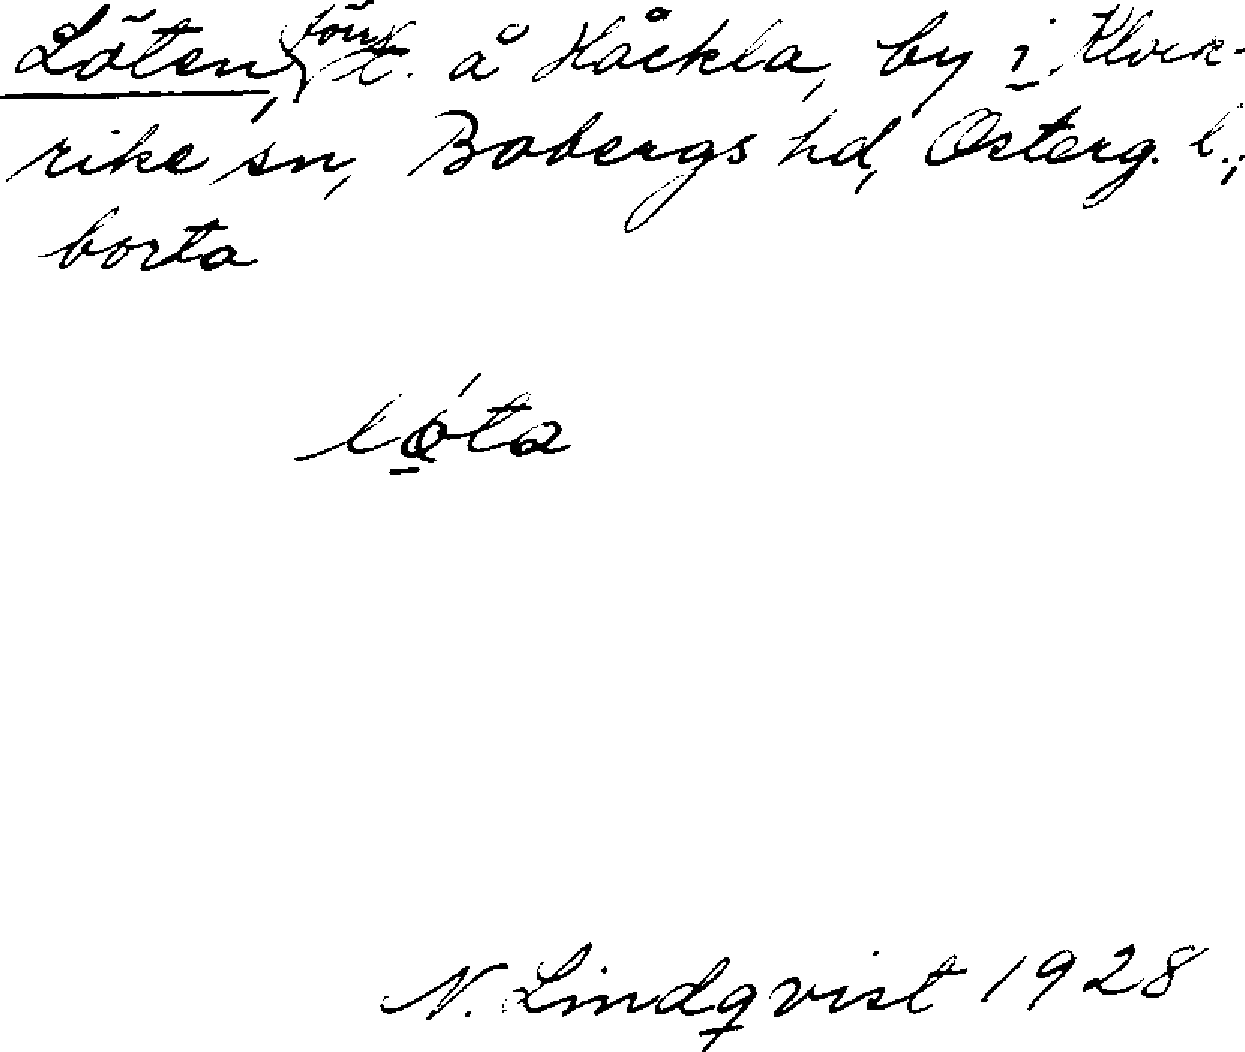 Löten, förr t. å Håckla, by i Klock-
rike sn, Bobergs hd, Österg. l.;
borta
N. Lindqvist 1928